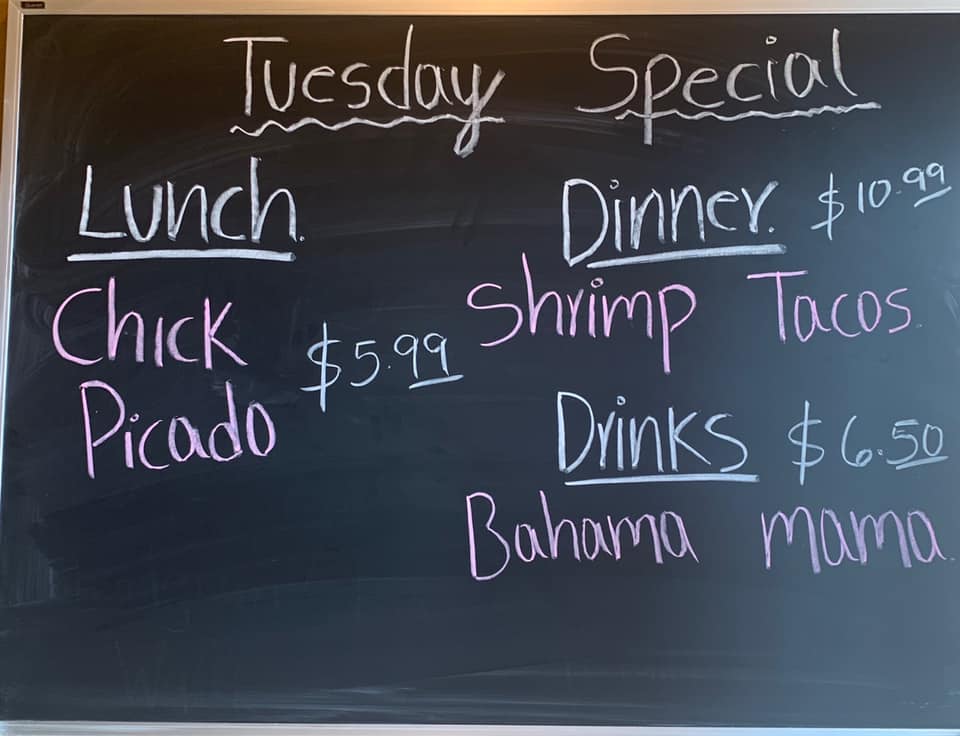 Tuesday Special
Lunch.
Chick
Picado
$5.99
Dinner. $10.99
Shrimp Tacos.
Drinks $6.50
Bahama mama.